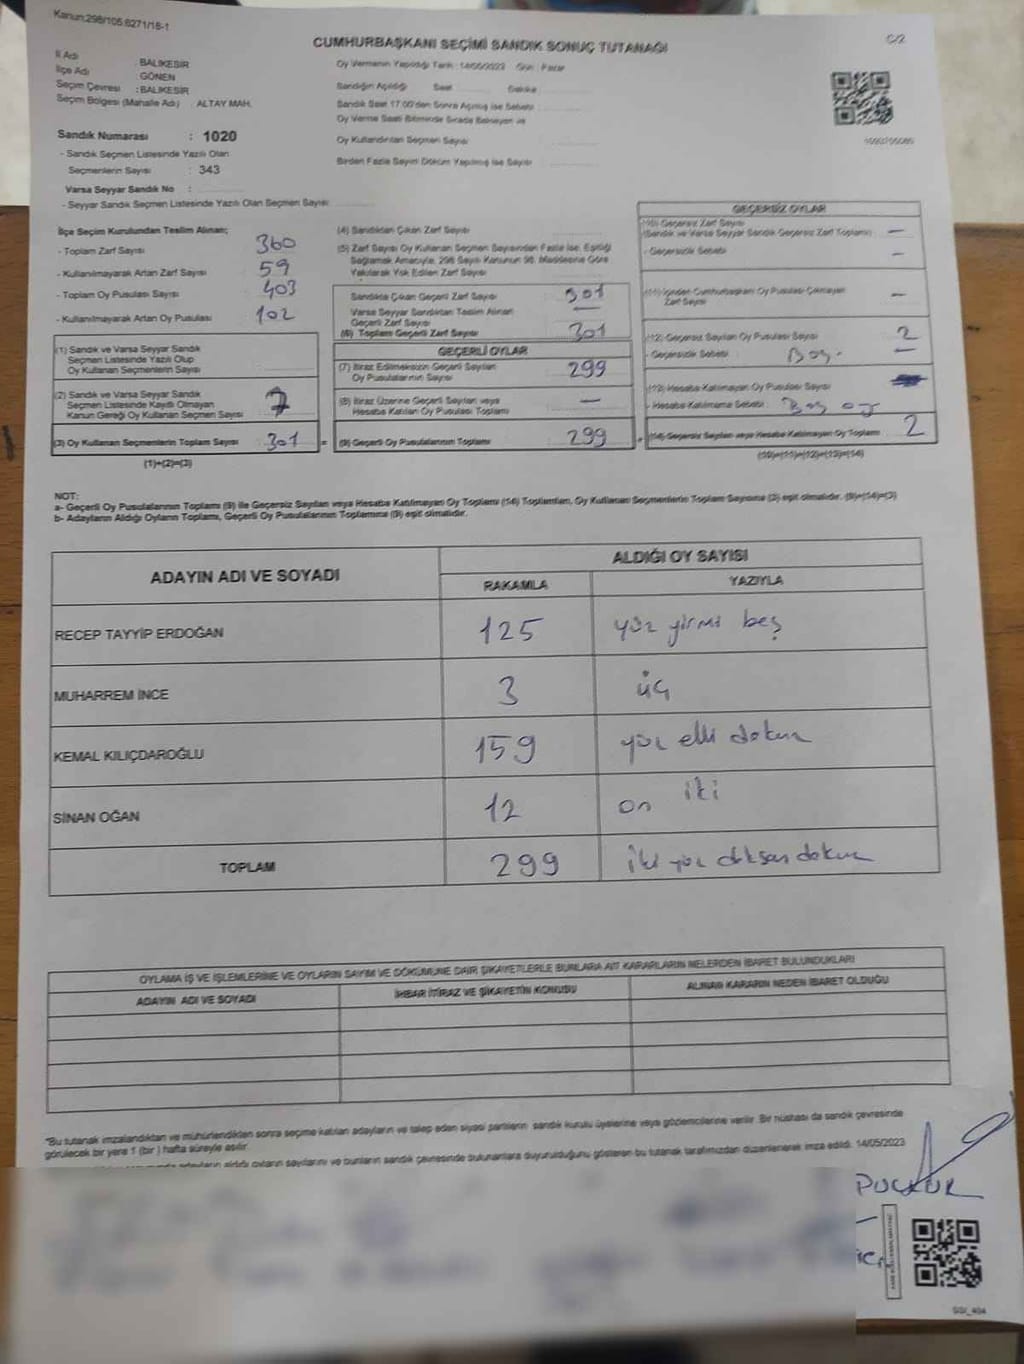 Kanun:298/105.6271/18-1
C/2
CUMHURBAŞKANI SEÇİMİ SANDIK SONUÇ TUTANAĞI
İl Adı : BALIKESİR
İlçe Adı : GÖNEN
Seçim Çevresi : BALIKESİR
Seçim Bölgesi (Mahalle Adı) : ALTAY MAH.
Sandık Numarası : 1020
- Sandık Seçmen Listesinde Yazılı Olan
Seçmenlerin Sayısı : 343
Varsa Seyyar Sandık No :
- Seyyar Sandık Seçmen Listesinde Yazılı Olan Seçmen Sayısı
Oy Vermenin Yapıldığı Tarih : 14/05/2023 Gün : Pazar
Sandığın Açıldığı Saat Dakika
Sandık Saat 17:00'den Sonra Açılmış ise Sebebi
Oy Verme Saati Bitiminde Sırada Bekleyen ve
Oy Kullandırılan Seçmen Sayısı
Birden Fazla Sayım Döküm Yapılmış ise Sayısı
İlçe Seçim Kurulundan Teslim Alınan;
- Toplam Zarf Sayısı 360
- Kullanılmayarak Artan Zarf Sayısı 59
- Toplam Oy Pusulası Sayısı 403
- Kullanılmayarak Artan Oy Pusulası 102
(1) Sandık ve Varsa Seyyar Sandık
Seçmen Listesinde Yazılı Olup
Oy Kullanan Seçmenlerin Sayısı
(2) Sandık ve Varsa Seyyar Sandık
Seçmen Listesinde Kayıtlı Olmayan
Kanun Gereği Oy Kullanan Seçmen Sayısı 7
(3) Oy Kullanan Seçmenlerin Toplam Sayısı 301 =
(1)+(2)=(3)
(4) Sandıktan Çıkan Zarf Sayısı
(5) Zarf Sayısı Oy Kullanan Seçmen Sayısından Fazla ise, Eşitliği
Sağlamak Amacıyla, 298 Sayılı Kanunun 98. Maddesine Göre
Yakılarak Yok Edilen Zarf Sayısı
Sandıkta Çıkan Geçerli Zarf Sayısı 301
Varsa Seyyar Sandıktan Teslim Alınan
Geçerli Zarf Sayısı —
(6) Toplam Geçerli Zarf Sayısı 301
GEÇERLİ OYLAR
(7) İtiraz Edilmeksizin Geçerli Sayılan
Oy Pusulalarının Sayısı 299
(8) İtiraz Üzerine Geçerli Sayılan veya
Hesaba Katılan Oy Pusulası Toplamı —
(9) Geçerli Oy Pusulalarının Toplamı 299 +
GEÇERSİZ OYLAR
(10) Geçersiz Zarf Sayısı
(Sandık ve Varsa Seyyar Sandık Geçersiz Zarf Toplamı) —
- Geçersizlik Sebebi —
(11) İçinden Cumhurbaşkanı Oy Pusulası Çıkmayan
Zarf Sayısı —
(12) Geçersiz Sayılan Oy Pusulası Sayısı 2
- Geçersizlik Sebebi Boş. —
(13) Hesaba Katılmayan Oy Pusulası Sayısı
- Hesaba Katılmama Sebebi Boş oy
(14) Geçersiz Sayılan veya Hesaba Katılmayan Oy Toplamı 2
(10)+(11)+(12)+(13)=(14)
NOT:
a- Geçerli Oy Pusulalarının Toplamı (9) ile Geçersiz Sayılan veya Hesaba Katılmayan Oy Toplamı (14) Toplamları, Oy Kullanan Seçmenlerin Toplam Sayısına (3) eşit olmalıdır. (9)+(14)=(3)
b- Adayların Aldığı Oyların Toplamı, Geçerli Oy Pusulalarının Toplamına (9) eşit olmalıdır.
ADAYIN ADI VE SOYADI
ALDIĞI OY SAYISI
RAKAMLA YAZIYLA
RECEP TAYYİP ERDOĞAN 125 yüz yirmi beş
MUHARREM İNCE 3 üç
KEMAL KILIÇDAROĞLU 159 yüz elli dokuz
SİNAN OĞAN 12 on iki
TOPLAM 299 iki yüz doksan dokuz
OYLAMA İŞ VE İŞLEMLERİNE VE OYLARIN SAYIM VE DÖKÜMÜNE DAİR ŞİKAYETLERLE BUNLARA AİT KARARLARIN NELERDEN İBARET BULUNDUKLARI
ADAYIN ADI VE SOYADI İHBAR İTİRAZ VE ŞİKAYETİN KONUSU ALINAN KARARIN NEDEN İBARET OLDUĞU
"Bu tutanak imzalandıktan ve mühürlendikten sonra seçime katılan adayların ve talep eden siyasi partilerin sandık kurulu üyelerine veya gözlemcilerine verilir. Bir nüshası da sandık çevresinde
görülecek bir yere 1 (bir) hafta süreyle asılır.
adayların aldığı oyların sayılarını ve bunların sandık çevresinde bulunanlara duyurulduğunu gösteren bu tutanak tarafımızdan düzenlenerek imza edildi. 14/05/2023